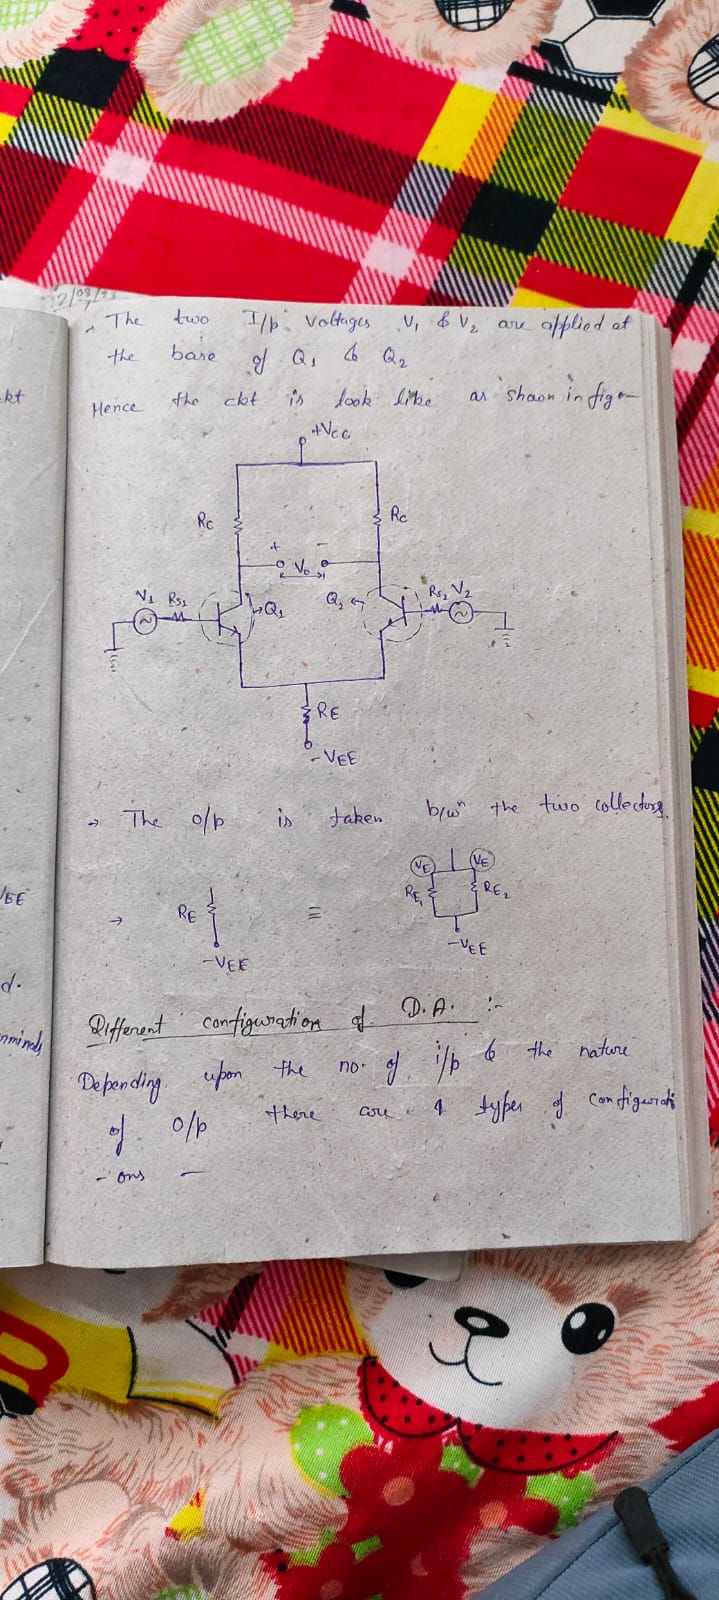 12/08/23
→ The two I/p voltages V1 & V2 are applied at
the base of Q1 & Q2
Hence the ckt is look like as shown in fig -
+VCC
RC
RC
+ -
V0
V1 RS1
Q1
Q2
RS2 V2
RE
-VEE
→ The o/p is taken b/wn the two collectors.
→ RE ≡
-VEE
VE VE
RE1 RE2
-VEE
Different configuration of D.A. :-
Depending upon the no. of i/p & the nature
of o/p there are 4 types of configurati
- ons -
kt
VEE
d.
minals